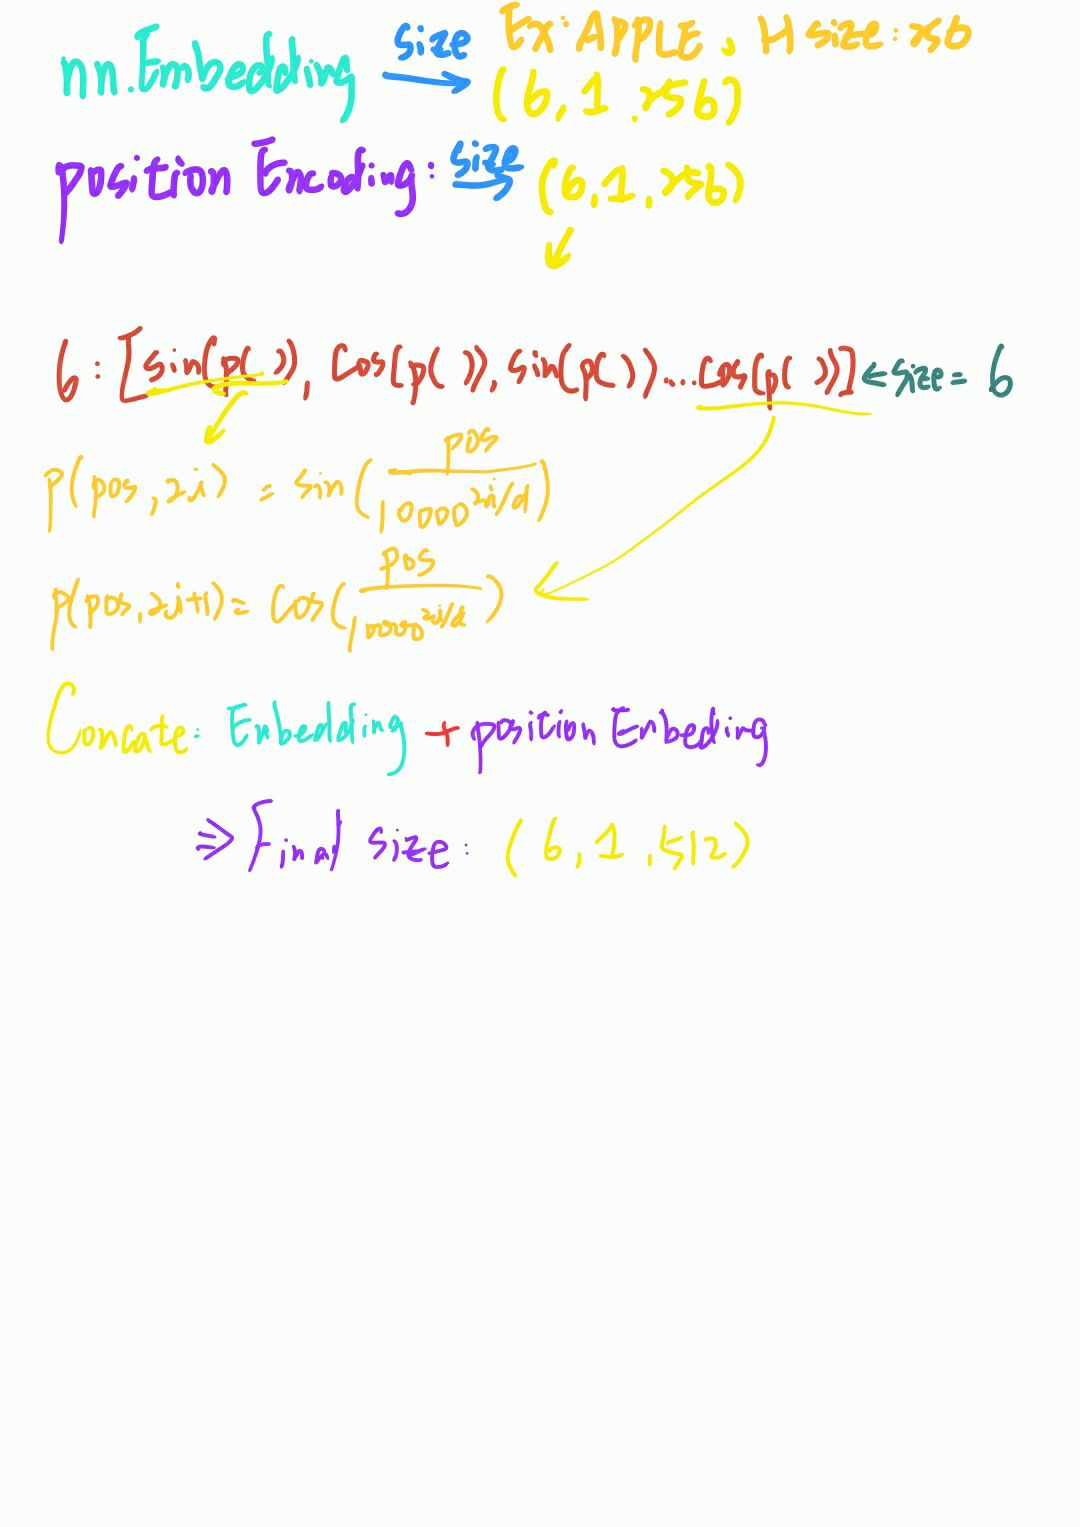 nn.Embedding size → Ex: APPLE, H size: 256
(6, 1, 256)
position Encoding: size → (6, 1, 256)
6: [sin(p( )), Cos(p( )), sin(p( ))...Cos(p( ))] ← size = 6
p(pos, 2i) = sin(pos/10000^2i/d)
p(pos, 2i+1) = Cos(pos/10000^2i/d)
Concate: Enbedding + position Enbeding
⇒ Final size: (6, 1, 512)